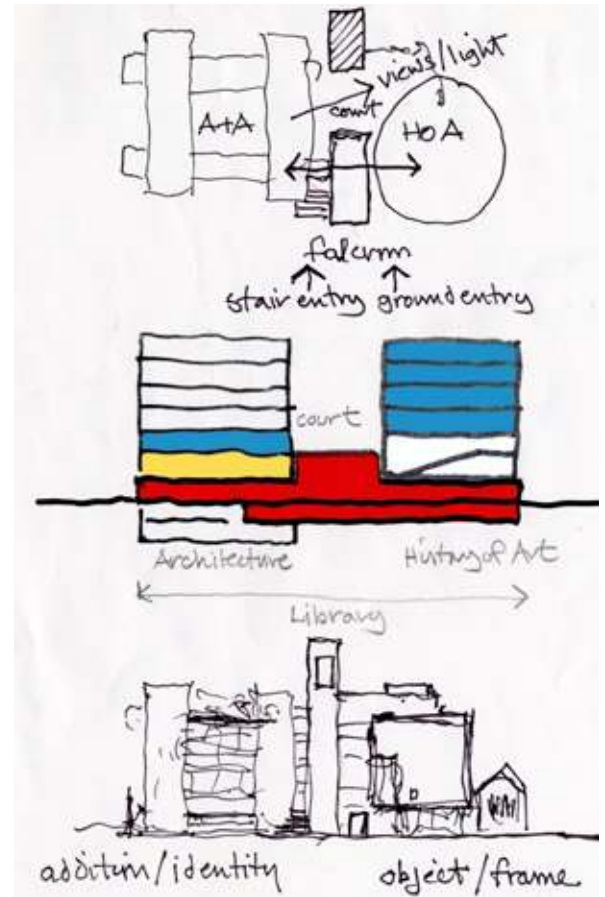 views/light
court
A+A
HoA
fulcrum
stair entry ground entry
court
Architecture
History of Art
Library
addition/identity
object/frame